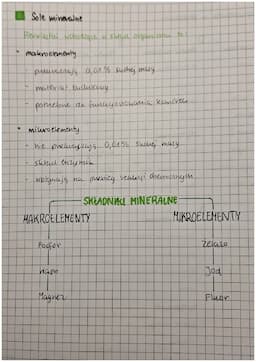 Sole mineralne
Pierwiastki wchodzące w skład organizmu to:
• makroelementy
- przekraczają 0,01% suchej masy
- materiał budulcowy
- potrzebne do funkcjonowania komórek
• mikroelementy
- nie przekraczają 0,01% suchej masy
- skład enzymów
- wpływają na reakcji chemicznych
SKŁADNIKI MINERALNE
MAKROELEMENTY MIKROELEMENTY
Fosfor Żelazo
Wapń Jod
Magnez Fluor